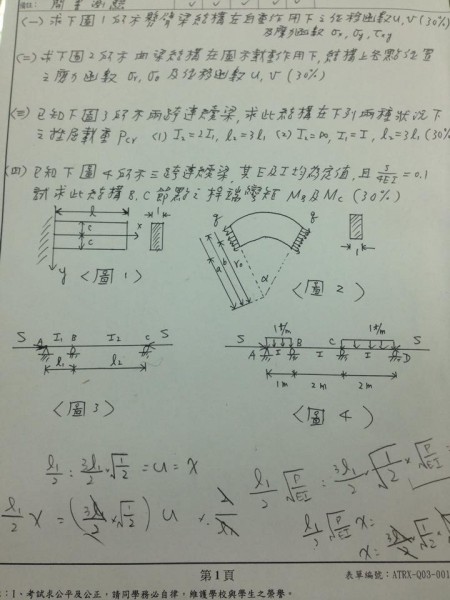 (一) 求下圖1所示懸臂梁結構在自重作用下之位移函數u, v (30%)
及應力函數 σx, σy, τxy
(二) 求下圖2所示曲梁結構在圖示載重作用下, 結構上各點位置
之應力函數 σr, σθ 及位移函數 u, v (30%)
(三) 已知下圖3所示兩跨連續梁, 求此結構在下列兩種狀況下
之挫屈載重 Pcr (1) I2=2I1, l2=3l1 (2) I2=∞, I1=I, l2=3l1 (30%)
(四) 已知下圖4所示三跨連續梁, 其E及I均為定值, 且 S/4EI = 0.1
試求此結構B, C節點之桿端彎矩 MB及MC (30%)
l
1
c
c
x
y
<圖1>
q
q
a
b
r0
α
1
<圖2>
S
A
I1
B
I2
C
S
l1
l2
<圖3>
1t/m
1t/m
S
A
I
B
I
C
I
D
S
1m
2m
2m
<圖4>
l1/2 : 3l1/2 × √1/2 = u = x
l1/2 x = (3l1/2 × √1/2) u
l1/2 √P/EI : 3l1/2 × √1/2 × √P/EI
l1/2 √P/EI x =
第1頁
表單編號：ATRX-Q03-001
：1、考試求公平及公正，請同學務必自律，維護學校與學生之榮譽。